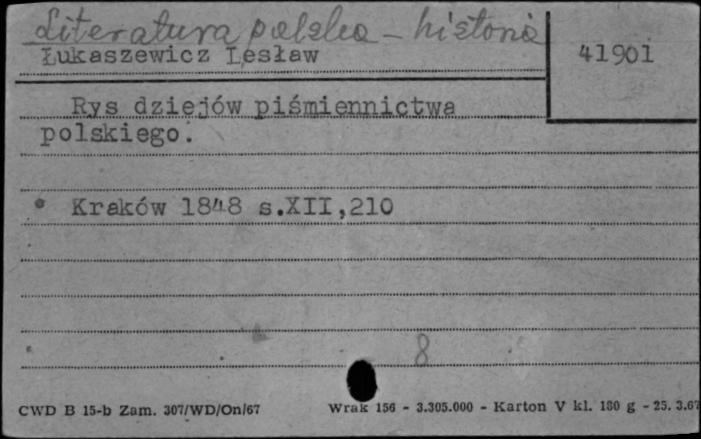 Literatura polska - historia
Łukaszewicz Lesław
41901
Rys dziejów piśmiennictwa
polskiego.
Kraków 1848 s.XII,210
8
CWD B 15-b Zam. 307/WD/On/67 Wrak 156 - 3.305.000 - Karton V kl. 180 g - 25. 3.67